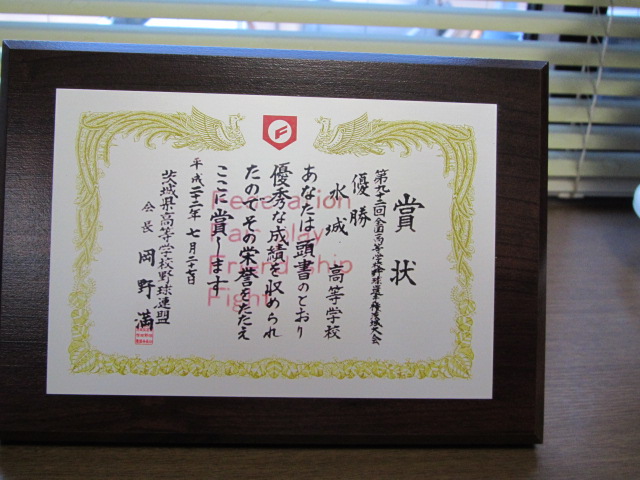 賞状
第九十二回全国高等学校野球選手権茨城大会
優勝
水城高等学校
あなたは頭書のとおり
優秀な成績を収められ
たのでその栄誉をたたえ
ここに賞します
平成二十二年七月二十七日
茨城県高等学校野球連盟
会長 岡野 満
F
Federation
Fair play
Friendship
Fight